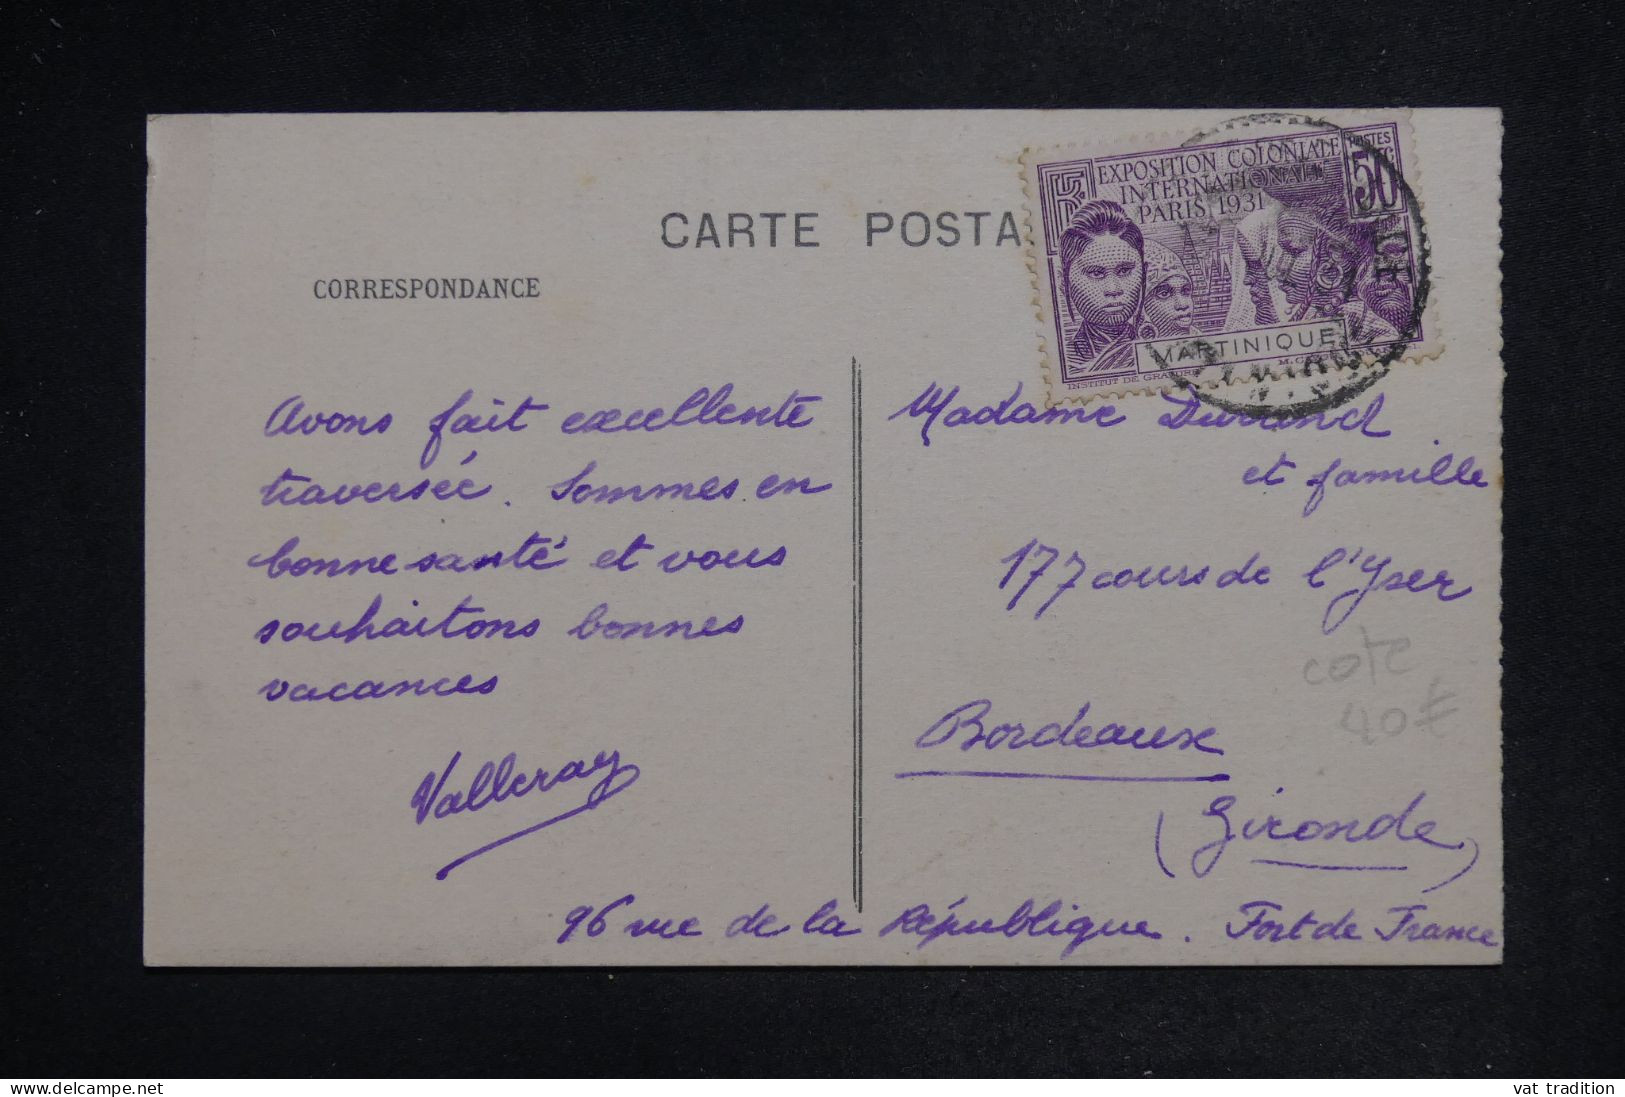 CARTE POSTA
CORRESPONDANCE
EXPOSITION COLONIALE
INTERNATIONALE
PARIS 1931
POSTES
50c
MARTINIQUE
INSTITUT DE GRAVURE
Avons fait excellente
traversée. Sommes en
bonne santé et vous
souhaitons bonnes
vacances
Valleray
Madame Durand
et famille
177 cours de l'Yser
cote
40€
Bordeaux
(Gironde)
96 rue de la République. Fort de France
vat tradition
www.delcampe.net